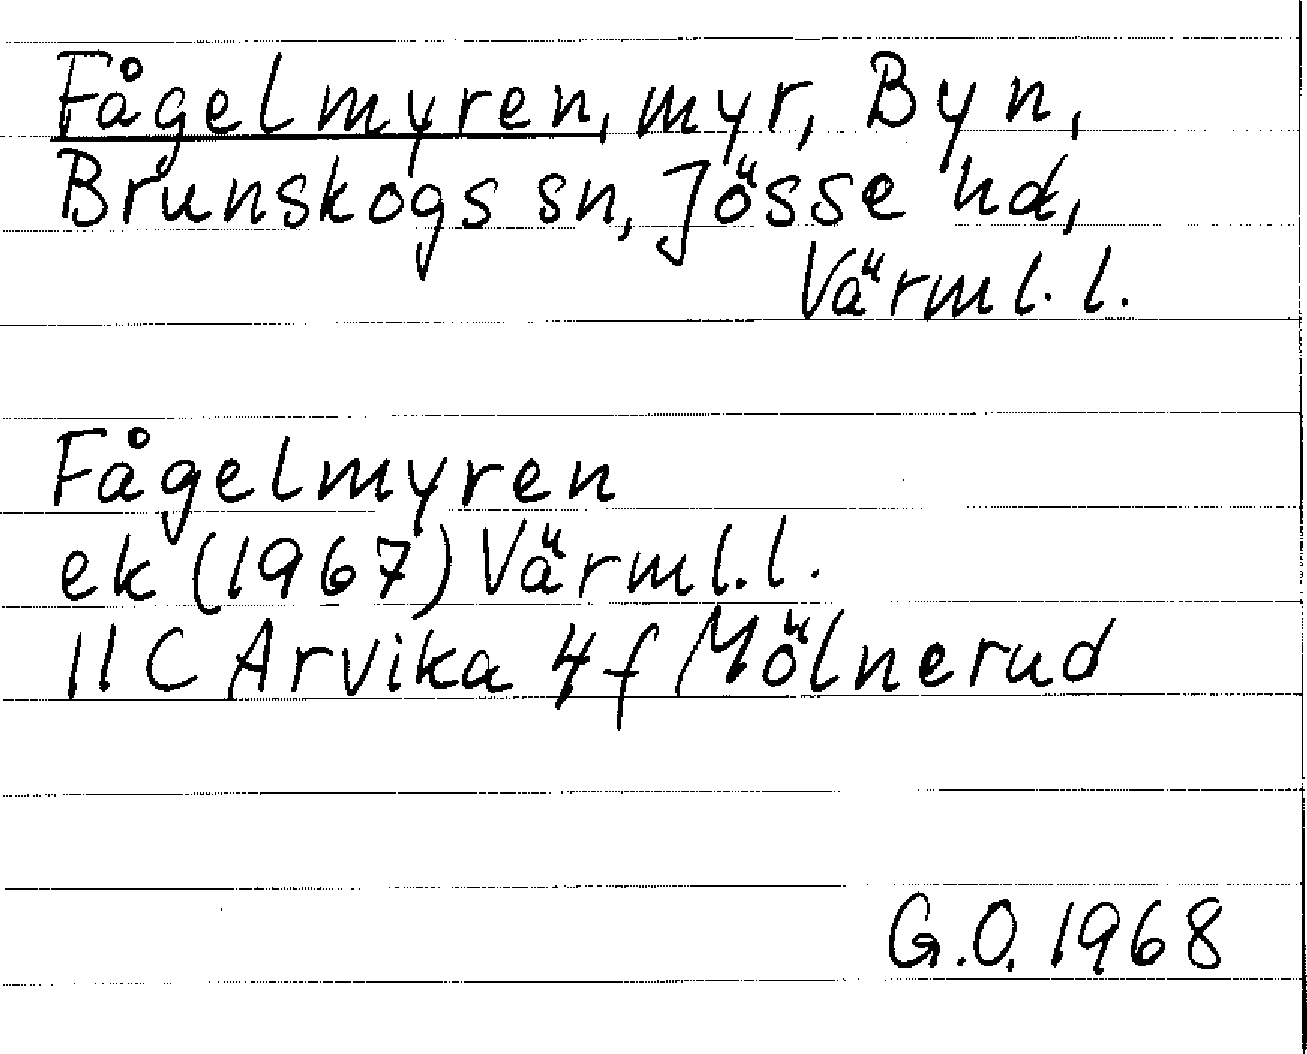 Fågelmyren, myr, Byn,
Brunskogs sn, Jösse hd,
Värml. l.
Fågelmyren
ek (1967) Värml. l.
11C Arvika 4f Mölnerud
G.O. 1968